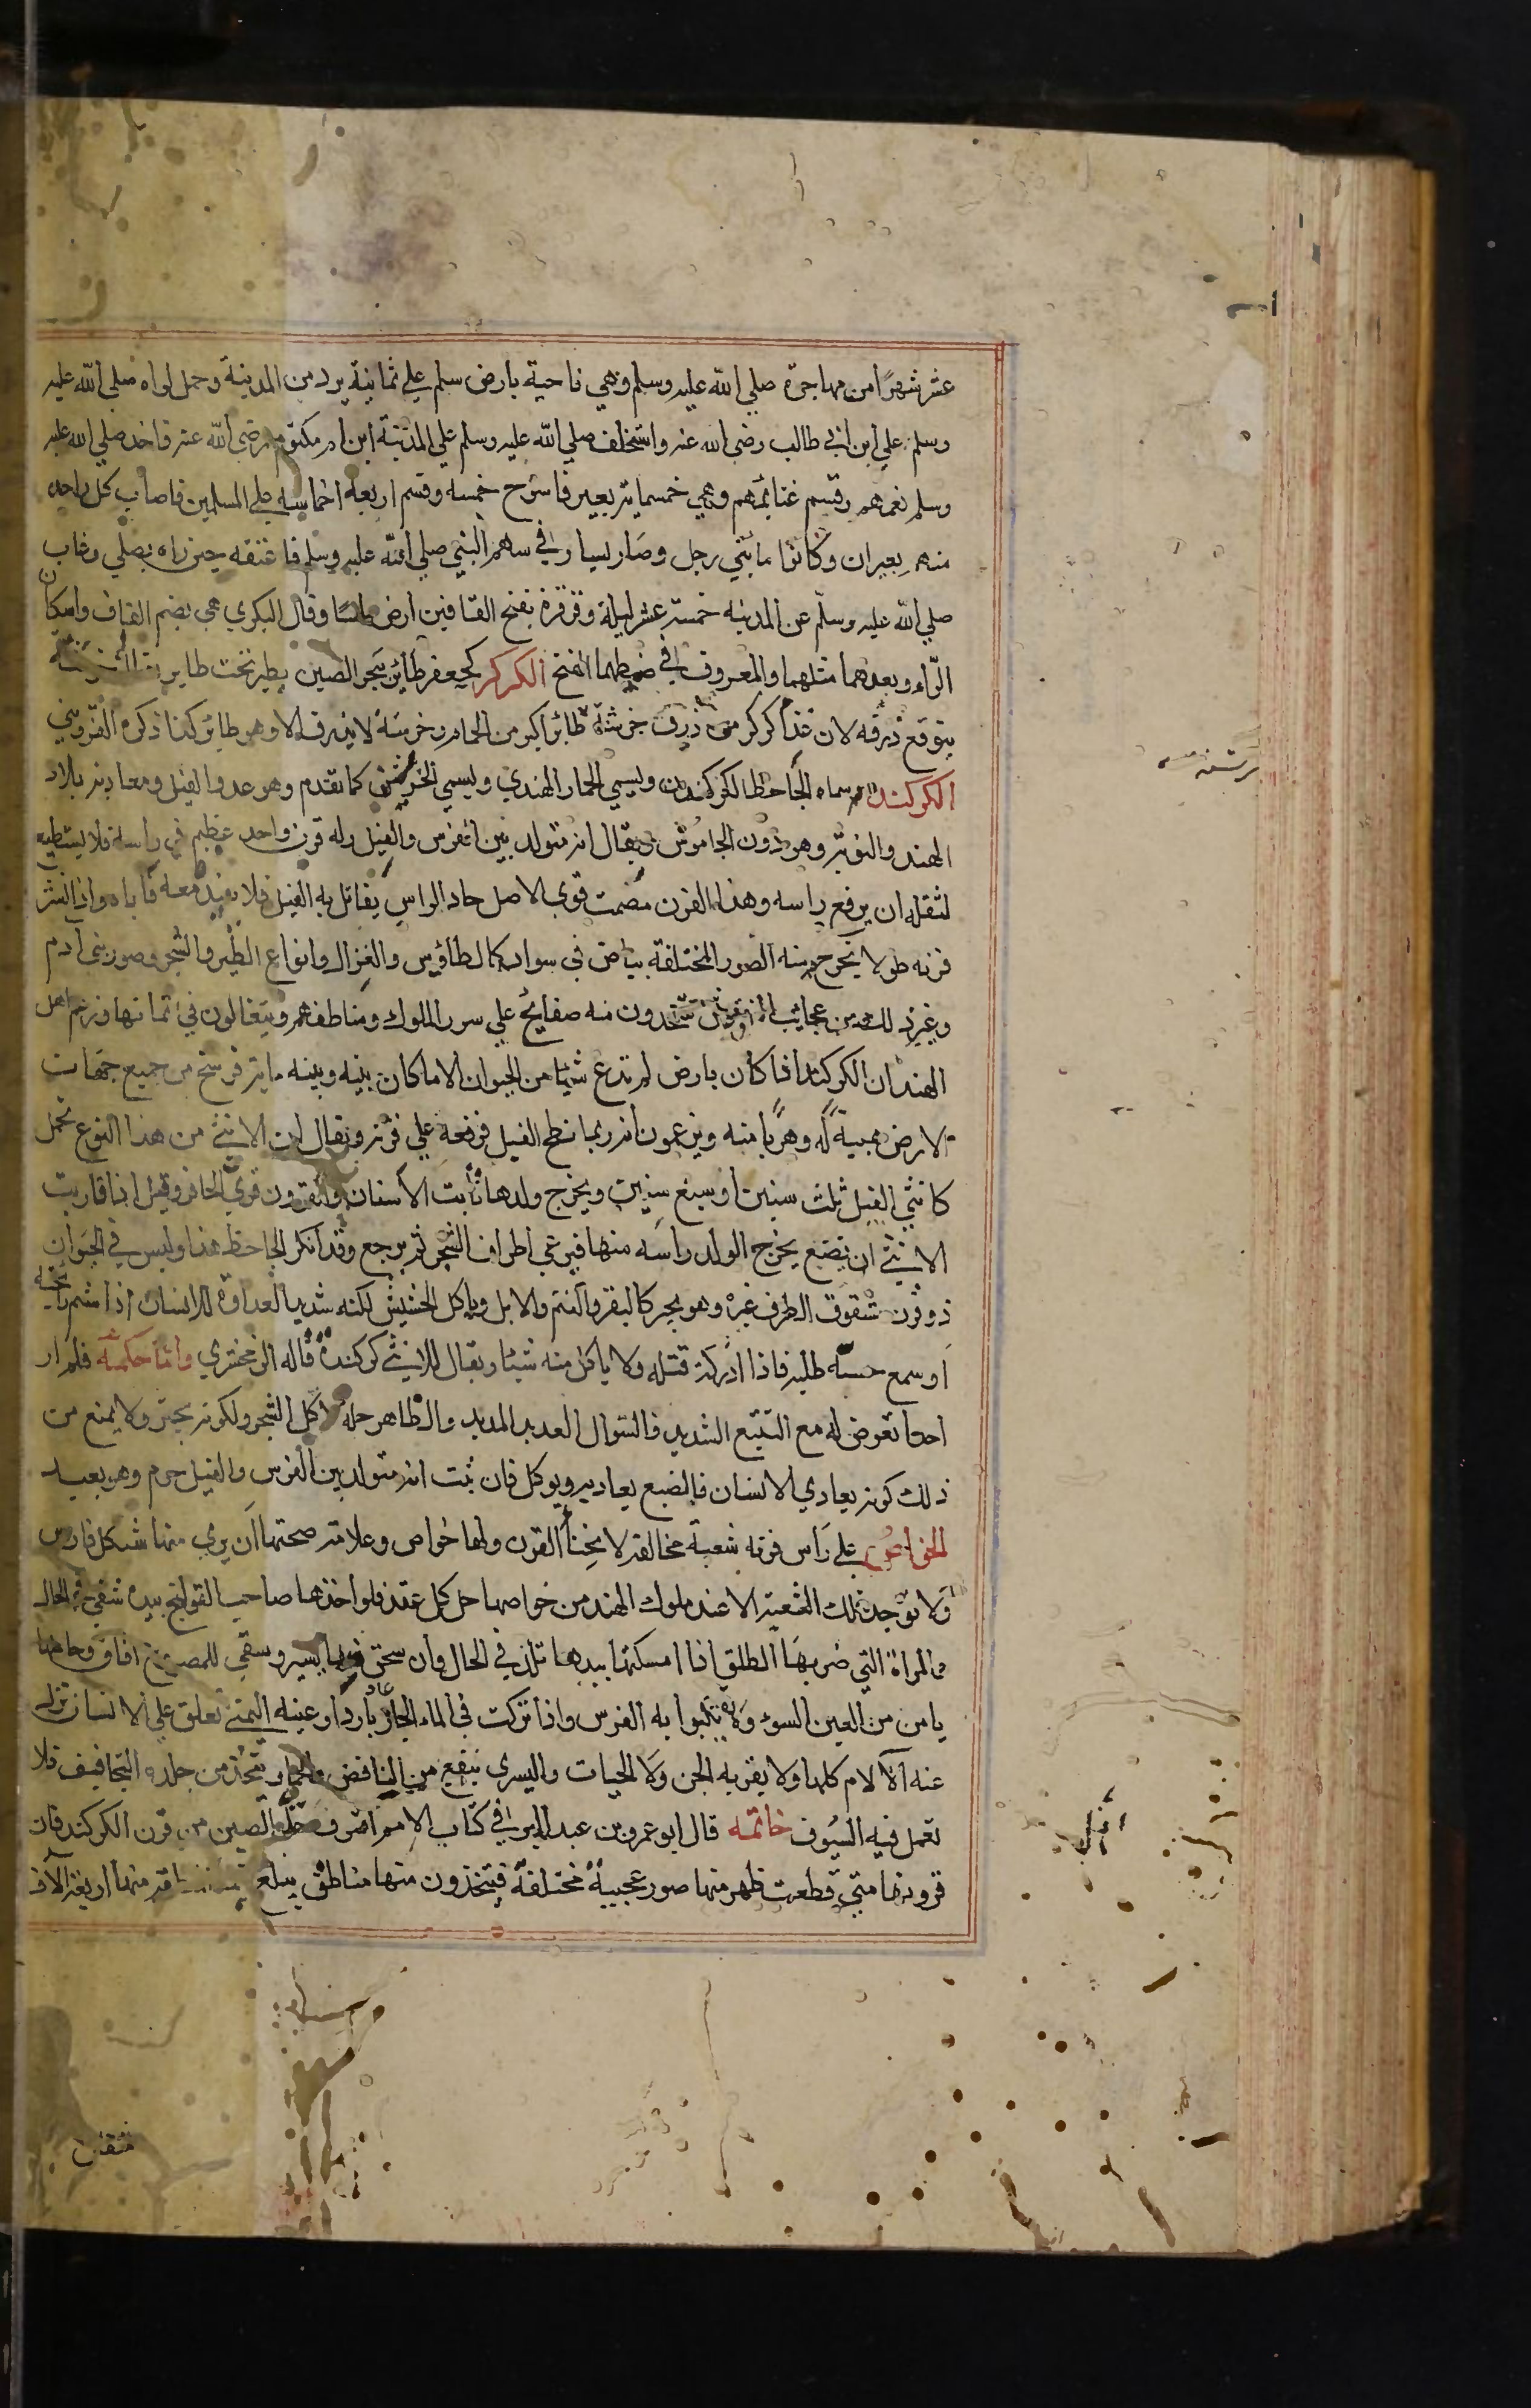 عشر شهرًا من مهاجرة صلي الله عليه وسلم وهي ناحية بارض سلم علي ثمانية برد من المدينة وحمل لواه صلي الله عليه
وسلم علي ابن ابي طالب رضي الله عنه واستخلف صلي الله عليه وسلم علي المدينة ابن ام مكتوم رضي الله عنه فاخذ صلي الله عليه
وسلم نعمهم وقسم غنايمهم وهي خمسماية بعير فاسرح خمسه وقسم اربعة اخماسه علي المسلمين فاصاب كل واحد
منهم بعيران وكانوا مائتي رجل وصار يسار في سهم النبي صلي الله عليه وسلم فاعتقه حين راه يصلي وغاب
صلي الله عليه وسلم عن المدينه خمسة عشر ليلة وقرقرة بفتح القافين ارض ملسا وقال البكري هي بضم القاف واسكان
الراء وبعدهما مثلهما والمعروف في ضبطهما الفتح الكركر كجعفر طائر ببحر الصين يطير تحت طاير يقال له خرشنة
يتوقع ذرقه لان غذا كركر من ذرق خرشنة طائر اكبر من الحمام وخرشنة لا يذرق الا وهو طائر كذا ذكره القزويني
الكركند سماه الجاحظ الكركدن ويسمي الحمار الهندي ويسمي الخريش كما تقدم وهو عدو الفيل ومعادنه بلاد
الهند والنوبة وهو دون الجاموس ويقال انه متولد بين الفرس والفيل وله قرن واحد عظيم في راسه فلا يستطيع
لثقله ان يرفع راسه وهذا القرن مصمت قوي الاصل حاد الراس يقاتل به الفيل فلا يفيد معه ناباه واذا نشر
قرنه طولا يخرج منه الصور المختلفة بياض في سواد كالطاوس والغزال وانواع الطير والشجر وصور بني ادم
وغير ذلك من عجايب النقوش يتخذون منه صفايح علي سرر الملوك ومناطقهم ويتغالون في اثمانها وزعم اهل
الهند ان الكركند اذا كان بارض لم تدع شيا من الحيوان الا ما كان بينه وبينه ماية فرسخ من جميع جهات
الارض هيبة له وهربا منه ويزعمون انه ربما نطح الفيل فرفعه علي قرنه ويقال ان الانثي من هذا النوع تحمل
كانثي الفيل ثلث سنين او سبع سنين ويخرج ولدها نابت الاسنان والقرون قوي الحافر وقيل اذا قاربت
الانثي ان تضع يخرج الولد راسه منها فيرعي اطراف الشجر ثم يرجع وقد انكر الجاحظ هذا وليس في الحيوان
ذو قرن مشقوق الظرف غيره وهو يجتر كالبقر والغنم والابل وياكل الحشيش لكنه شديد العداوة للانسان اذا شم رايحته
او سمع حسه طلبه فاذا ادركه قتله ولا ياكل منه شيئا ويقال للانثي كركندة قاله الزمخشري واما حكمه فلم ار
احدا تعرض له مع التتبع الشديد والسوال العديد المديد والظاهر حله لاكل الشجر ولكونه يجتر ولا يمنع من
ذلك كونه يعادي الانسان فالضبع يعاديه ويوكل فان ثبت انه متولد بين الفرس والفيل حرم وهو بعيد
الخواص علي راس قرنه شعبة مخالفة لانحنا القرن ولها خواص وعلامة صحتها ان يري منها شكل فارس
ولا توجد تلك الشعبة الا عند ملوك الهند من خواصها حل كل عقد فلو اخذها صاحب القولنج بيده شفي في الحال
والمراة التي ضربها الطلق اذا امسكتها بيدها تلد في الحال وان سحق منها يسير وسقي للمصروع افاق وحاملها
يامن من العين السوء ولا يكبوا به الفرس واذا تركت في الماء الحار عاد باردا وعينه اليمني تعلق علي الانسان تزل
عنه الالام كلها ولا يقربه الجن ولا الحيات واليسري ينفع من النافض والحمي ويتخذ من جلده التجافيف فلا
تعمل فيه السيوف خاتمه قال ابو عمر بن عبد البر في كتاب الامم اشرف حلي الصين من قرن الكركند فان
قرونها متي قطعت ظهر منها صور عجيبة مختلفة فيتخذون منها مناطق يبلغ قيمة المنطقة منها اربعة الاف
مثقال